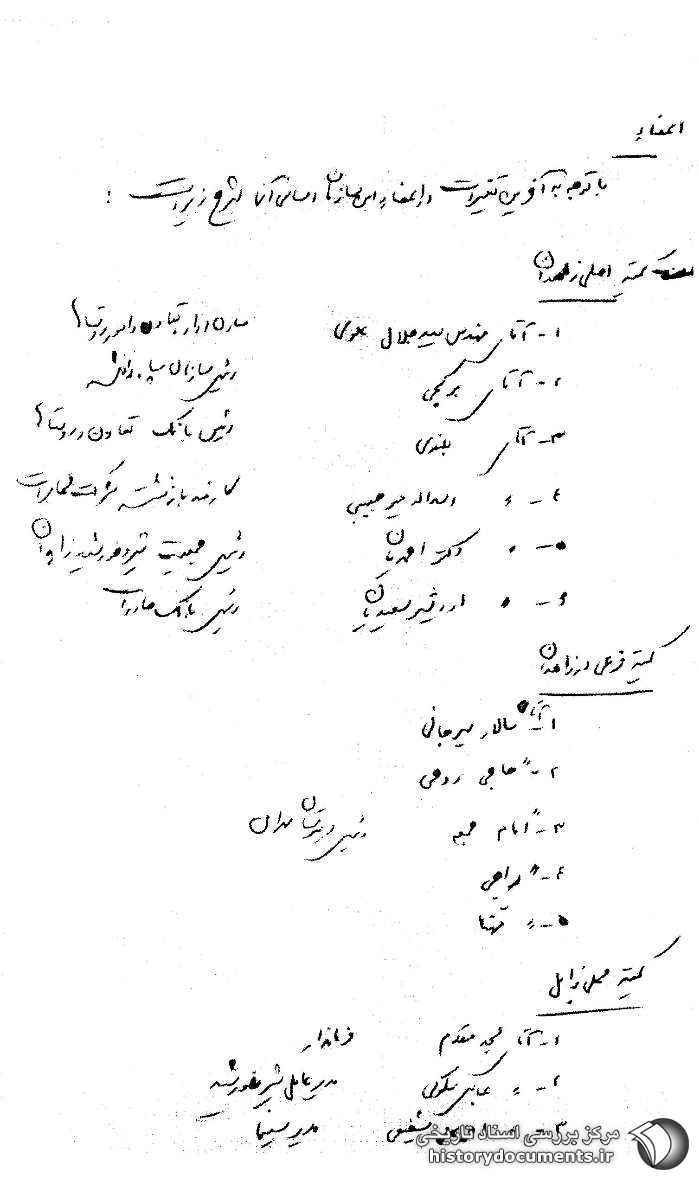 اعضاء
با توجه به آخرین تغییرات در اعضاء این سازمان اسامی آنان بشرح زیر است :
کمیته اصلی زاهدان
۱- آقای مهندس سید جلال علوی معاون اداره تعاون و امور روستاها
۲- آقای برنجی رئیس سازمان سپاه دانش
۳- آقای بلندی رئیس بانک تعاون و روستاها
۴- " اسداله میر حبیبی کارمند بازنشسته شرکت مخابرات
۵- " دکتر احمدیان رئیس جمعیت شیر و خورشید زاهدان
۶- " اردشیر سعیدیان رئیس بانک صادرات
کمیته فرعی در زاهدان
۱- آقای سالار میرجانی
۲- " حاجی روحی
۳- " امام جمعه رئیس دبیرستان
۴- "
۵- "
کمیته محلی زابل
۱- آقای مقدم فرماندار
۲- " عباس ملکوتی مدیر عامل شیر و خورشید
۳- " شفیق مدیر سینما
مرکز بررسی اسناد تاریخی
historydocuments.ir